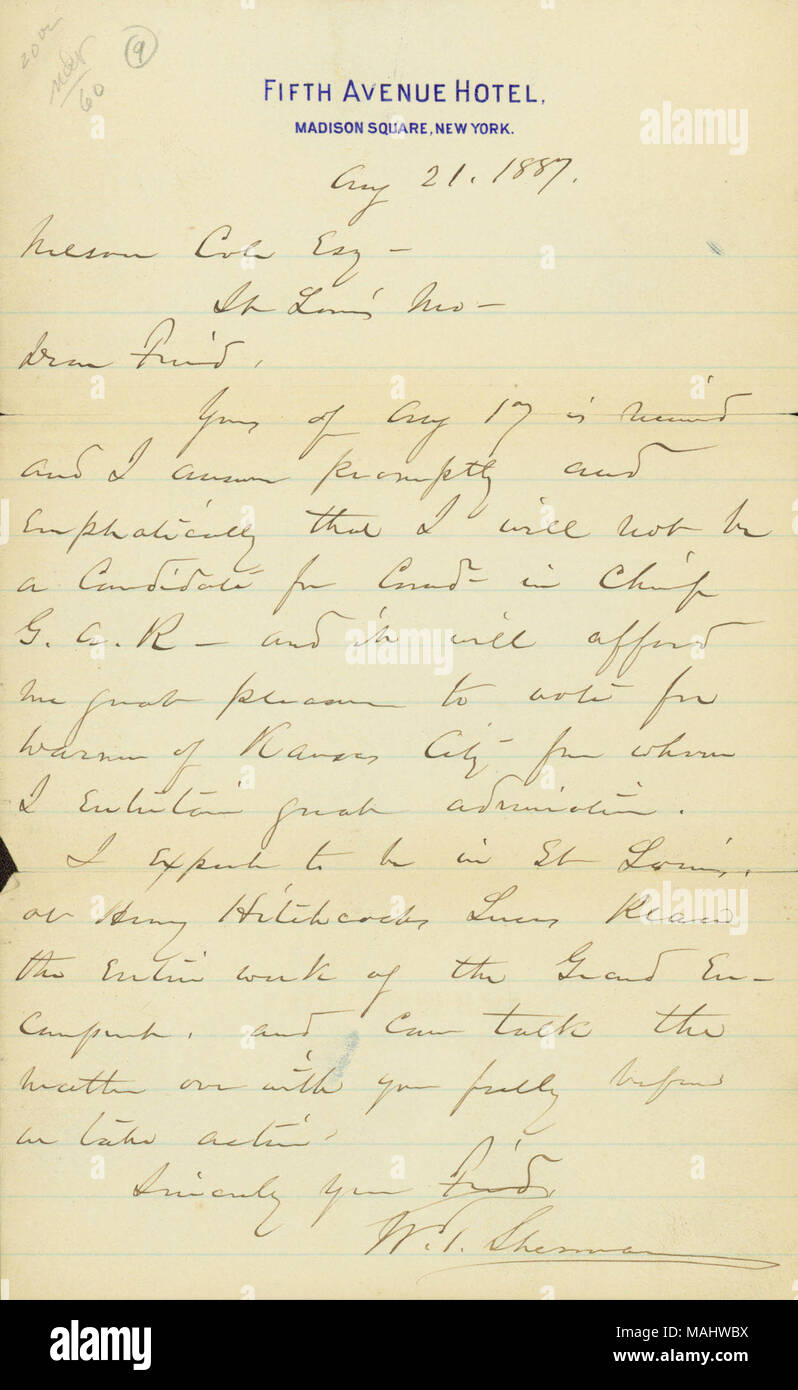 9
60
FIFTH AVENUE HOTEL,
MADISON SQUARE, NEW YORK.
Aug 21. 1887.
Nelson Cole Esq —
St Louis Mo —
Dear Friend,
Yours of Aug 17 is received
and I answer promptly and
Emphatically that I will not be
a Candidate for Comd- in Chief
G. A. R — and it will afford
me great pleasure to vote for
Warner of Kansas City for whom
I Entertain great admiration.
I Expect to be in St Louis,
at Henry Hitchcocks Lucas Place
the Entire week of the Grand En-
campmt, and can talk the
matter over with you fully before
we take action.
Sincerely your Friend,
W. T. Sherman
alamy
Image ID: MAHWBX
www.alamy.com